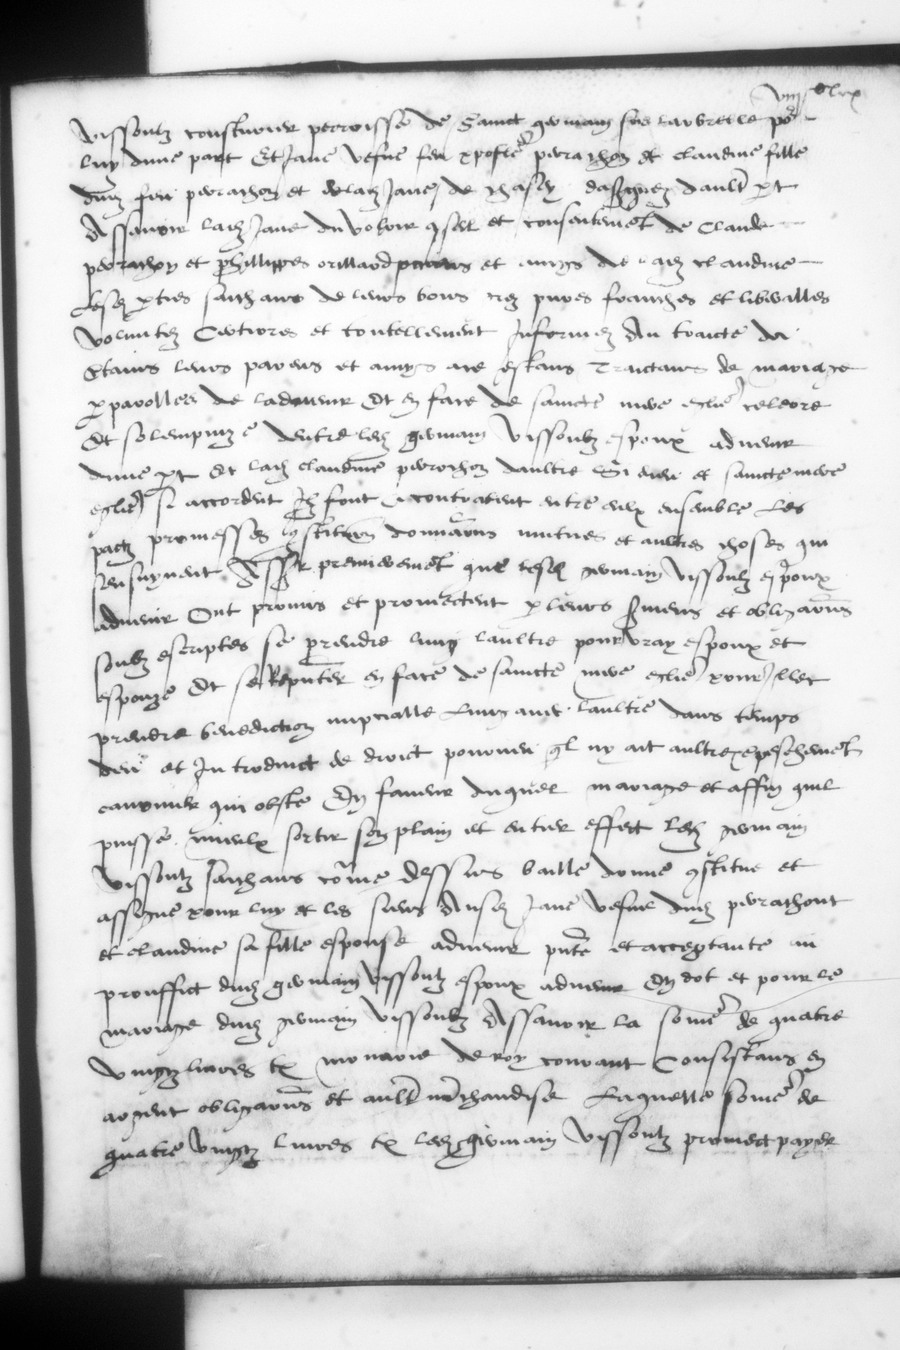 Vissoulz cousturier perroisse de Sainct germain sus larbrelle po[ur]
luy dune part Et Jane vefve feu xpofle perrachon et claudine fille
dud feu perrachon et de lad Jane de chasey daultr pt
Assavoir lad Jane du voloir gsel et consentement de Claude
perrachon et phillippes orillard parens et amys de lad claudine
Lesd pties saichans de leurs bons grez pures franches et liberalles
voluntez Certiores et tontellement Informez Au traicte de
leurs parens et amys ace estans Traictans de mariage
p parolles de ladvenir Et en face de saincte mere eglise celebre
Et solempnize dentre led germain Vissoulz espoux advenir
dune pt Et lad claudine perrachon daultre Si dieu et saincte mere
eglise si accordent Ilz font contractent entre eulx ensemble Les
pactz promesses gstitution donnations mutues et aultres choses qui
sensuyvent Asscr premierement que lesd germain Vissoulz espoux
advenir Ont promis et promectent p leurs sermens et obligations
soubz escriptes se prendre lung laultre pour vray espoux et
espouze Et se Reputer en face de saincte mere eglise pour Illec
prendre benediction nupcialle Lung avec laultre dans temps
deu et Introduict de droict pourveu ql ny ait aultre epeschement
canonicq qui obste En faveur duquel mariage et affin quil
puisse mieulx sortir son plain et entier effect Led germain
Vissoulz saichans come dessus baille donne gstitue et
assigne pour luy et les siens Ausd Jane vefve dud perrachon
et claudine sa fille espouse advenir pnte et acceptante au
prouffict dud germain Vissoulz espoux advenir En dot et pour le
mariage dud germain Vissoulz Assavoir la some de quatre
vingtz livres tz monnoie de roy courant Consistans en
argent obligations et aultr mrchandise Laquelle some de
quatre vingtz livres tz led germain Vissoulz promect payer